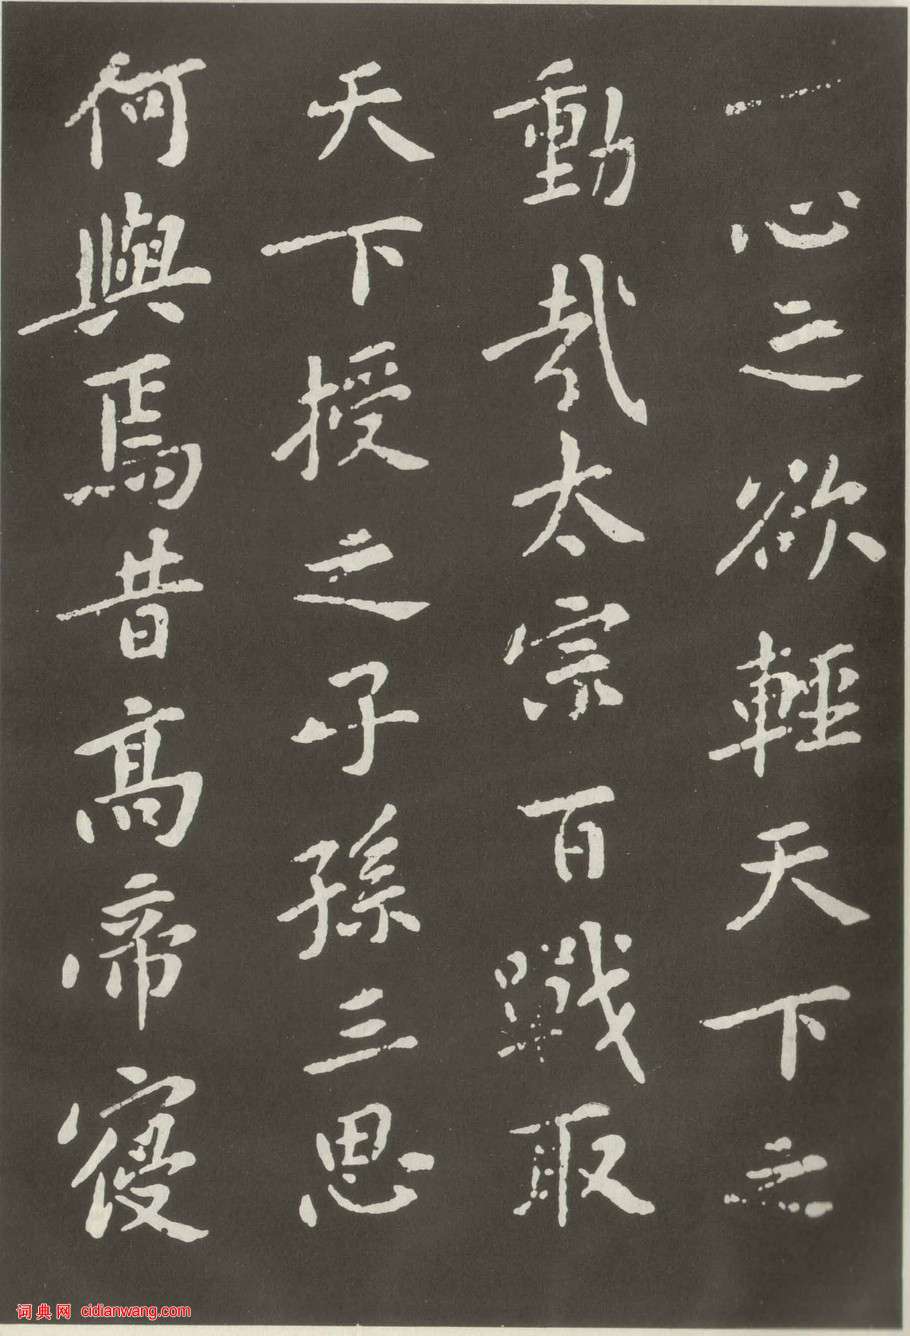 一心之欲輕天下之
動哉太宗百戰取
天下授之子孫三思
何與焉昔高帝寢
词典网 cidianwang.com